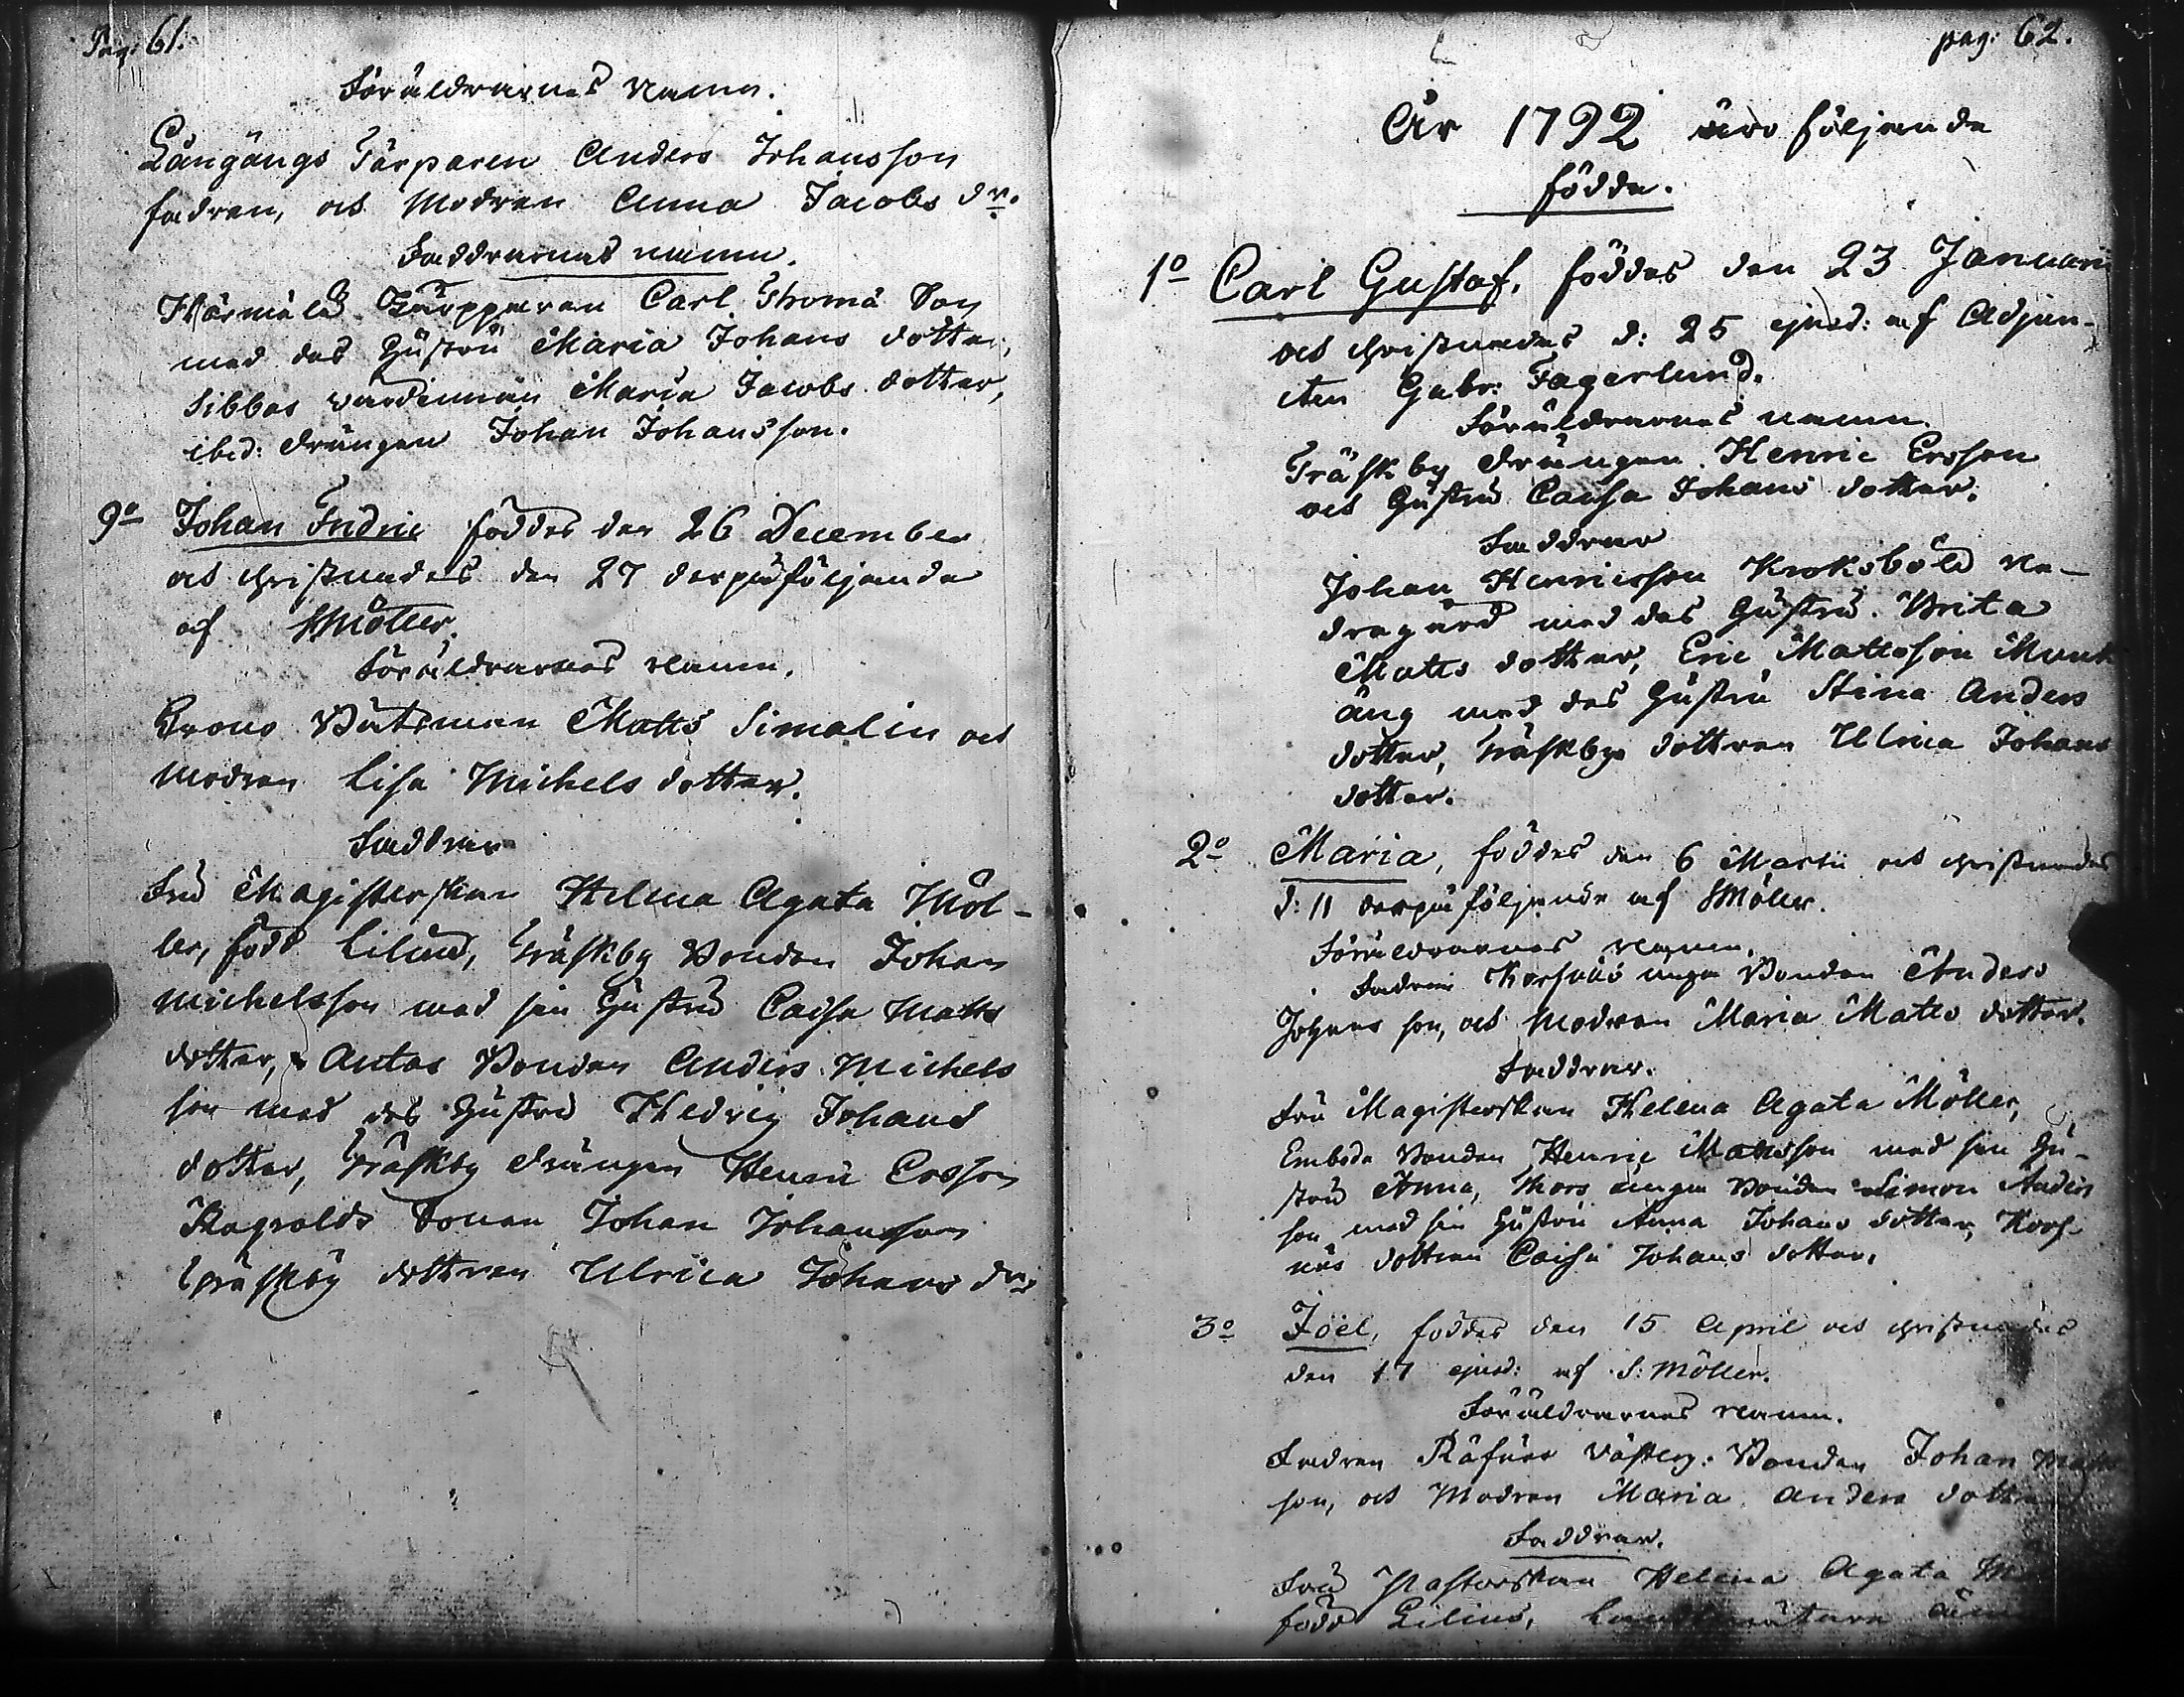 Pag: 61.
Föräldrarnes Namn.
Långängs Tårparen Anders Johansson
fadren, och Modren Anna Jacobs dr.
Faddrarnas namn.
Carl Thomæ Son
med des Hustru Maria Johans dotter,
Sibbas Maria Jacobs dotter,
ibid: drängen Johan Johansson.
9o Johan Fridric föddes den 26 December
och christnades den 27 derpåföljande
af SMöller.
Föräldrarnes Namn.
Krono Båtsman Matts Simalin och
Modren Lisa Michels dotter.
Faddrar
Fru Magisterskan Helena Agata Möl-
ler, född Lilius, Träskby Bonden Johan
Michelsson med sin Hustru Caisa Matts
dotter, Antas Bonden Anders Michels
son med des Hustru Hedvig Johans
dotter, Träskby drängen Henric Ersson
Ragvalds Sonen Johan Johansson
Träskby dottren Ulrica Johans dr
pag: 62.
År 1792 äro följande
födde.
1o Carl Gustaf, föddes den 23 Januarii
och christnades d: 25 ejusd: af Adjun-
cten Gabr: Fagerlund.
Föräldrarnes namn.
Träskby drängen Henric Ersson
och Hustru Caisa Johans dotter.
Faddrar
Johan Henricsson Kroksböle Ne-
dregård med des Hustru Brita
Matts dotter, Eric Mattsson Munk
äng med des Hustru Stina Anders
dotter, Träskby dottren Ulrica Johans
dotter.
2o Maria, föddes den 6 Martii och christnades
d: 11 derpå följande af SMöller.
Föräldrarnes Namn.
Fadren Bonden Anders
Johans son, och Modren Maria Matts dotter.
Faddrar.
Fru Magisterskan Helena Agata Möller,
Embods Bonden Henric Mattsson med sin Hu-
stru Anna, Bonden Simon Anders
son med sin Hustru Anna Johans dotter, Kors-
näs dottren Caisa Johans dotter.
3o Joel, föddes den 15 April och christnades
den 17 ejusd: af S: Möller.
Föräldrarnes Namn.
Fadren Bonden Johan Matts
son, och Modren Maria Anders dotter
Faddrar.
Fru Pastorskan Helena Agata
född Lilius,